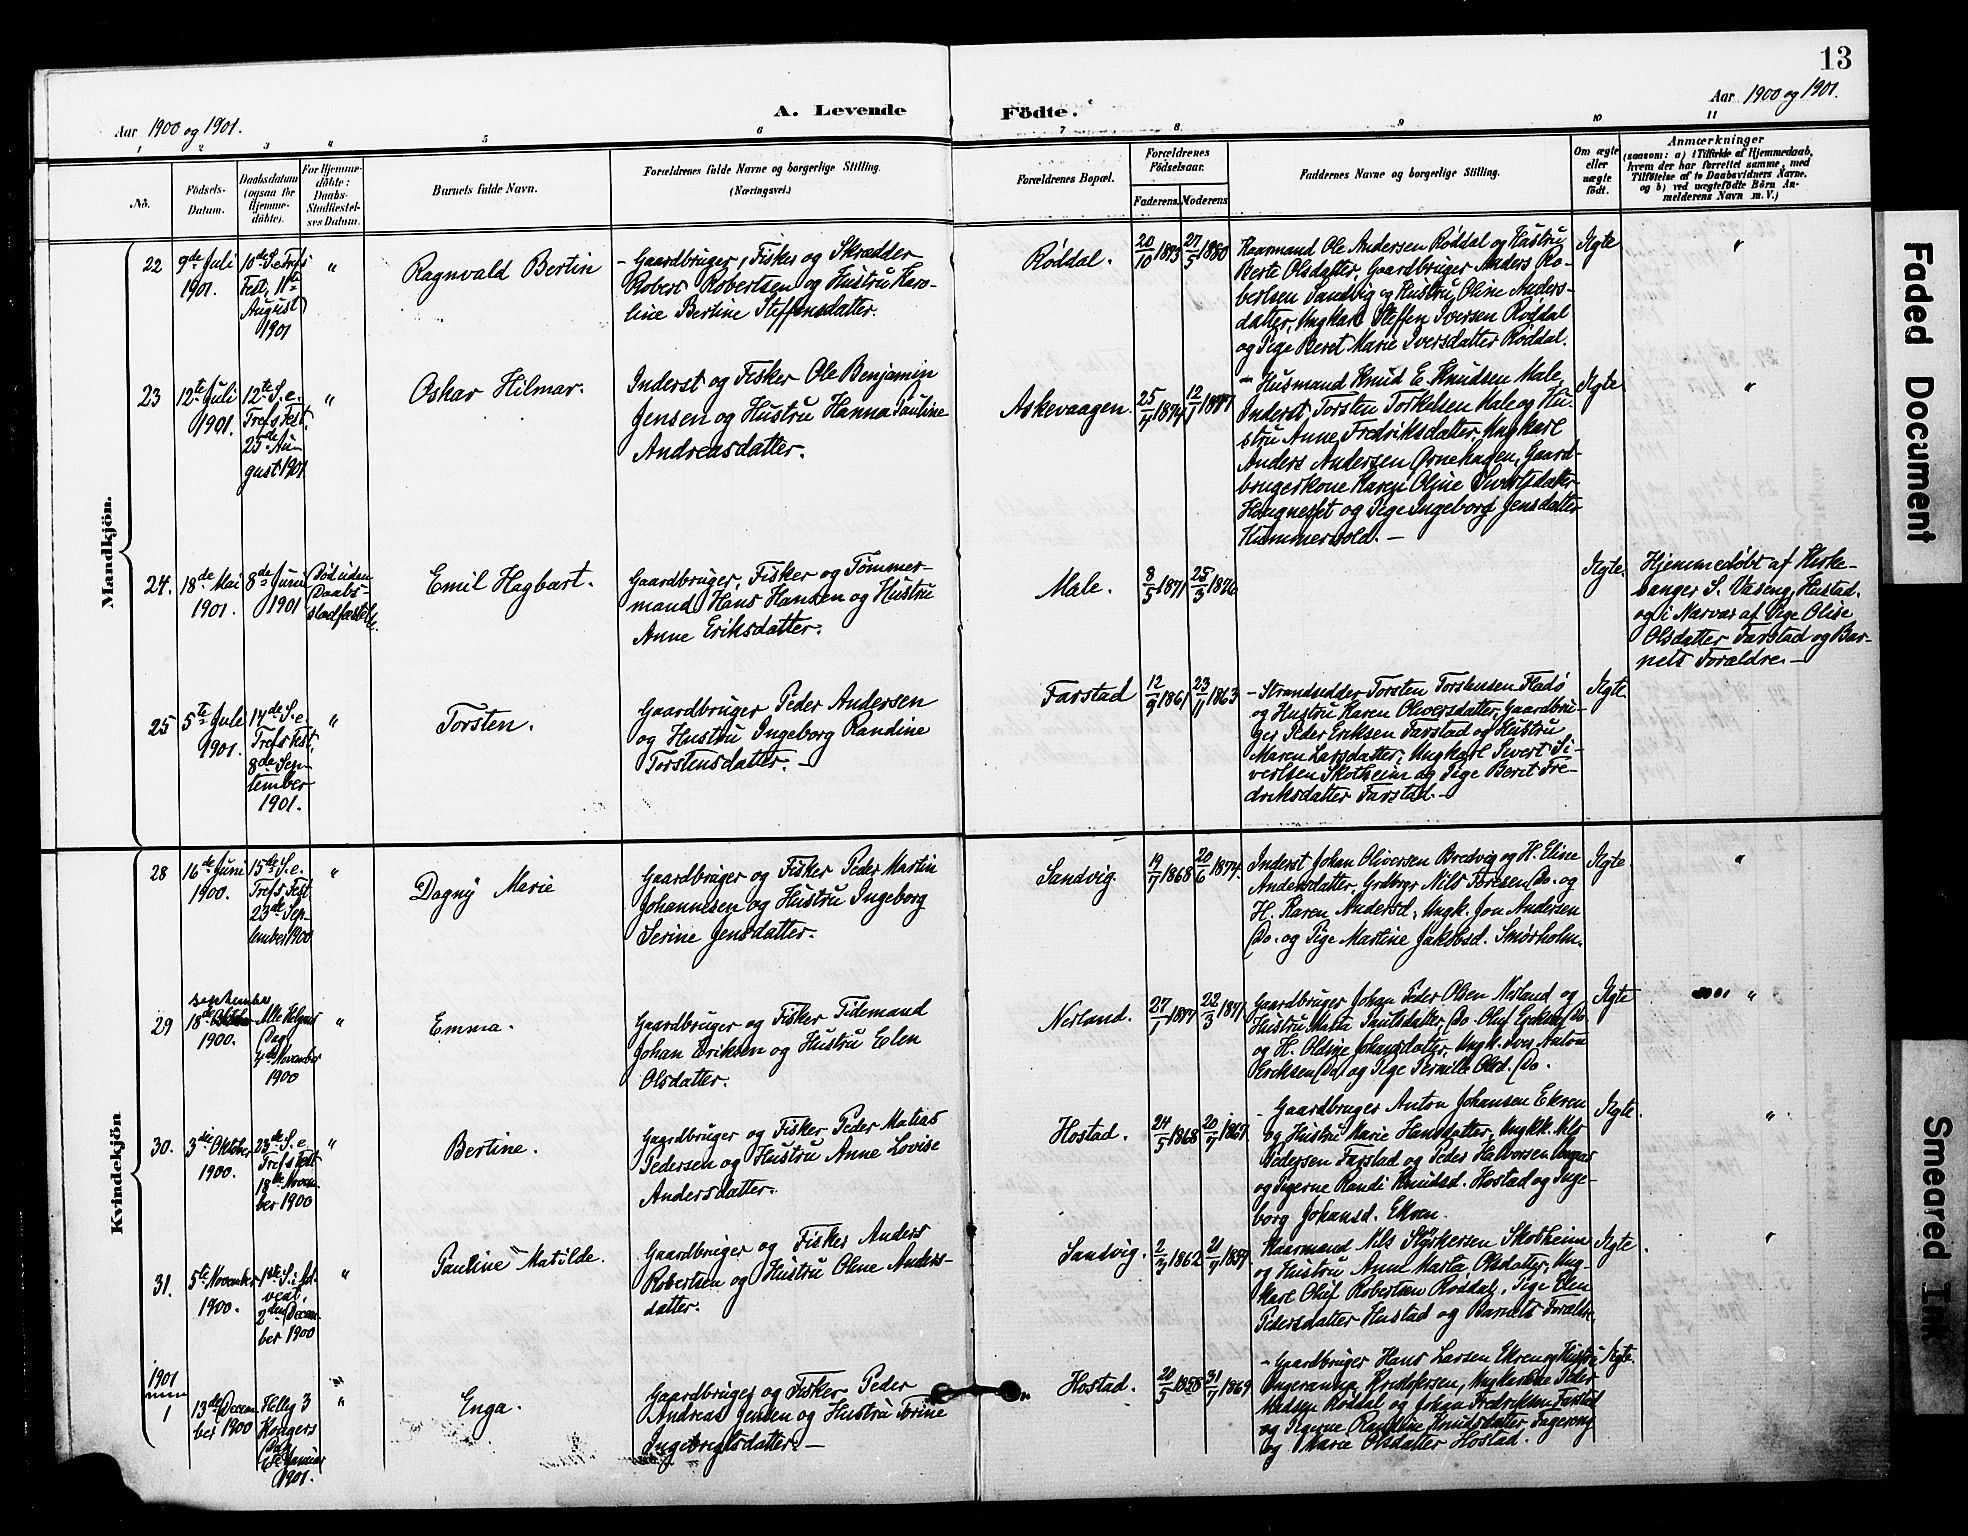 13
A. Levende Födte.
Aar 1900 og 1901.
Aar 1900 og 1901.
1 2 3 4 5 6 7 8 9 10 11
No.
Födsels-
Datum.
Daabsdatum
(ogsaa for
Hjemme-
döbte).
For Hjemme-
döbte:
Daabs-
Stadfæstel-
ses Datum.
Barnets fulde Navn.
Forældrenes fulde Navne og borgerlige Stilling.
(Næringsvei.)
Forældrenes Bopæl.
Forældrenes
Födselsaar.
Faderens.
Moderens
Faddernes Navne og borgerlige Stilling.
Om ægte
eller
uægte
födt.
Anmærkninger
(saasom: a) i Tilfælde af Hjemmedaab,
hvem der har forrettet samme, med
Tilföielse af to Daabsvidners Navne.
og b) ved uægtefödte Börn An-
melderens Navn m. V.)
Mandkjön.
22
9de Juli
1901.
10de S.e.Trefs
Fest, 11te
August
1901
"
Ragnvald Bertin
- Gaardbruger, Fisker og Skrædder
Robert Robertsen og Hustru Karo-
line Bertine Steffensdatter.
Røddal.
20/10 1873
27/5 1880
Kaarmand Ole Andersen Røddal og Hustru
Berte Olsdatter, Gaardbruger Anders Ro-
bertsen Sandvig og Hustru Oline Anders-
datter, Ungkarl Steffen Iversen Røddal
og Pige Beret Marie Iversdatter Røddal.
Ægte
"
23
12te Juli
1901.
12te S.e.
Trefs Fest.
25de Au-
gust 1901
"
Oskar Hilmar.
Inderst og Fisker Ole Benjamin
Jensen og Hustru Hanna Pauline
Andreasdatter.
Askevaagen.
25/4 1874
12/1 1877
- Husmand Knud E. Knudsen Male,
Inderst Torsten Torkelsen Male og Hu-
stru Anne Fredriksdatter, Ungkarl
Anders Andersen Ornehagen, Gaard-
brugerkone Karen Oline Sivertsdatter
Hougneset og Pige Ingeborg Jensdatter
Hammervold. -
Ægte
"
24.
18de Mai
1901.
8de Juni
1901
Død uden
Daabs-
stadfæstelse.
Emil Hagbart.
Gaardbruger, Fisker og Tømmer-
mand Hans Hansen og Hustru
Anne Eriksdatter.
Male.
8/5 1871
25/3 1876
Ægte.
Hjemmedøbt af Kirke-
sanger S. Vaseng, Hustad.
og i Nærvær af Pige Olise
Olsdatter Farstad og Bar-
nets Forældre. -
25
5te Juli
1901.
14de S.e.
Trefs Fest.
8de Sep-
tember
1901.
"
Torsten.
Gaardbruger Peder Andersen
og Hustru Ingeborg Randine
Torstensdatter. -
Farstad
12/9 1861
23/11 1863
- Strandsidder Torsten Torstensen Fladø
og Hustru Karen Oliversdatter, Gaardbru-
ger Peder Eriksen Farstad og Hustru
Maren Larsdatter, Ungkarl Sivert Si-
vertsen Skotheim og Pige Beret Fre-
driksdatter Farstad. -
Ægte
Kvindekjön
28
16de Juni
1900.
15de S.e.
Trefs Fest
23de Sep-
tember 1900
"
Dagny Marie
Gaardbruger og Fisker Peder Martin
Johannesen og Hustru Ingeborg
Serine Jensdatter.
Sandvig
19/7 1868
20/6 1874
Inderst Johan Oliversen Bredvig og H. Eline
Andersdatter, Grdbrgr Nils Toresen Do. og
H. Karen Andersd., Ungk. Jon Andersen
Do. og Pige Martine Jakobsd. Smørholm.
Ægte
"
29
September
18de Oktober
1900.
Alle Helgens
Dag
4de November
1900
"
Emma.
Gaardbruger og Fisker Tidemand
Johan Eriksen og Hustru Elen
Olsdatter.
Nerland.
27/1 1877
22/3 1871
Gaardbruger Johan Peder Olsen Nerland og
Hustru Marta Paulsdatter, Do. Oluf Eriksen Do
og H. Oldine Johansdatter, Ungk. Iver Anton
Eriksen Do og Pige Pernille Olsd. Do.
Ægte
"
30.
3die Oktober
1900.
23de S.e.
Trefs Fest
18de Novem-
ber 1900
"
Bertine.
Gaardbruger og Fisker Peder Matias
Pedersen og Hustru Anne Lovise
Andersdatter.
Hostad.
24/5 1868
20/7 1867
- Gaardbruger Anton Johansen Ekren
og Hustru Marie Hansdatter, Ungkk. Nils
Pedersen Farstad og Peder Halvorsen
og Pigerne Randi Knudsd. Hostad og Inge-
borg Johansd. Ekren.
Ægte
"
31.
5te November
1900.
1ste S. i Ad-
vent,
2den Decem-
ber 1900
"
Pauline Matilde.
Gaardbruger og Fisker Anders
Robertsen og Hustru Oline Anders-
datter.
Sandvig.
2/3 1862
21/7 1857
Kaarmand Nils Styrkersen Skotheim
og Hustru Anne Marta Olsdatter, Ung-
karl Oluf Robertsen Røddal, Pige Elen
Pedersdatter Hustad og Barnets Forældre.
Ægte
"
1901
1
13de Decem-
ber 1900
Hellig 3
Kongers
Dag
6te Januar
1901.
"
Enga.
Gaardbruger og Fisker Peder
Andreas Jensen og Hustru Trine
Ingebrigtsdatter. -
Hostad.
20/5 1858
31/7 1869
- Gaardbruger Hans Larsen Ekren og Hustru
Ingeranna Kristofersen, Ungkarlene Peder
Madsen Røddal og Johan Fredriksen Farstad
og Pigerne Randine Knudsdatter
og Marie Olsdatter Hostad.
Ægte.
Faded Document
Smeared Ink